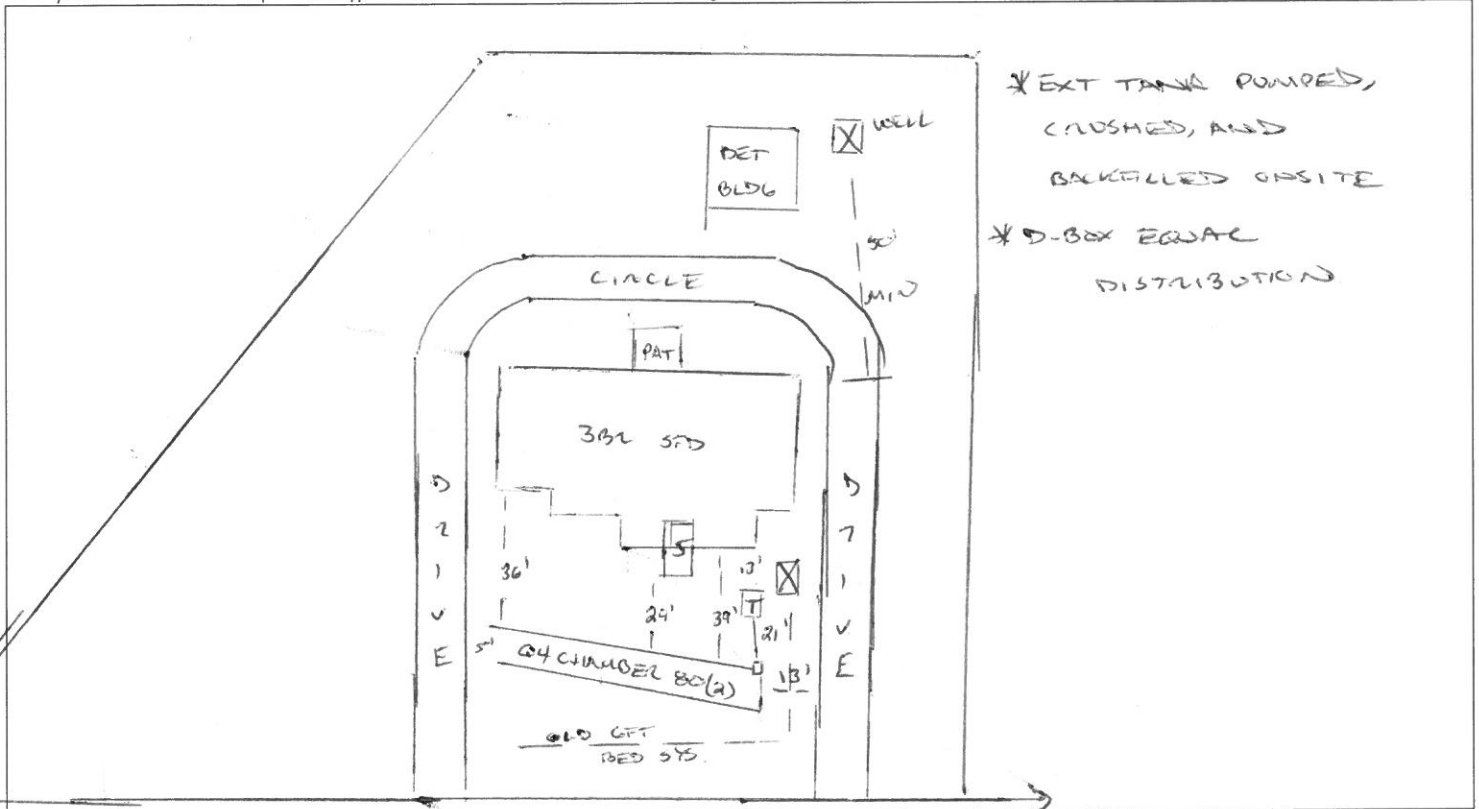 * EXT TANK PUMPED,
CRUSHED, AND
BACKFILLED ONSITE
* D-BOX EQUAL
DISTRIBUTION
WELL
DET
BLDG
50'
MIN
CIRCLE
PAT
3BR SFD
DRIVE
DRIVE
S
36'
24'
39'
13'
T
21'
13'
5'
Q4 CHAMBER 80(2)
OLD GFT
BED SYS.